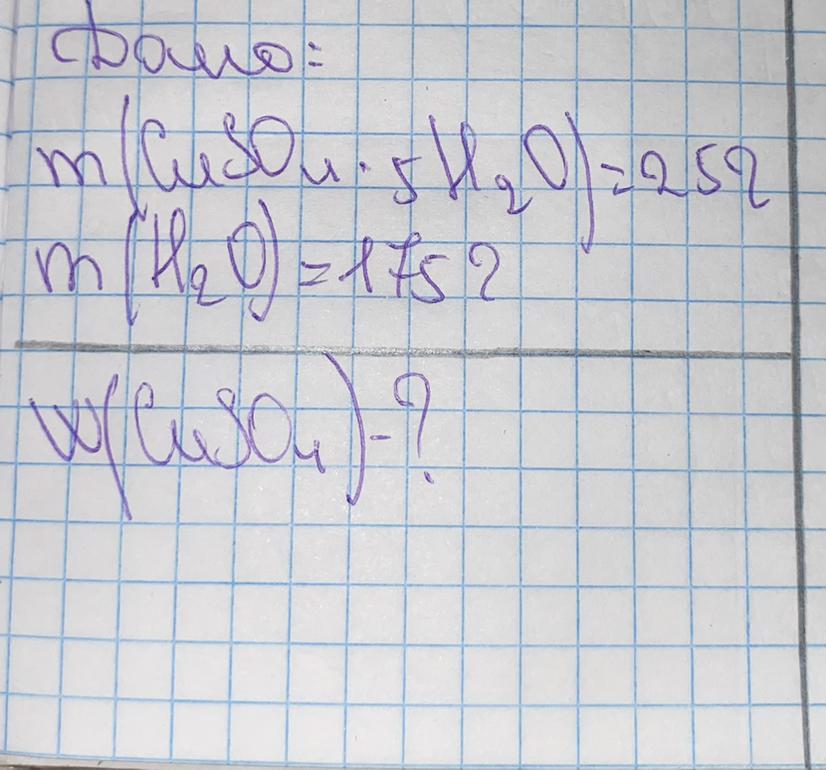 Дано:
m(CuSO₄·5H₂O)=25г
m(H₂O)=175г
w(CuSO₄)-?